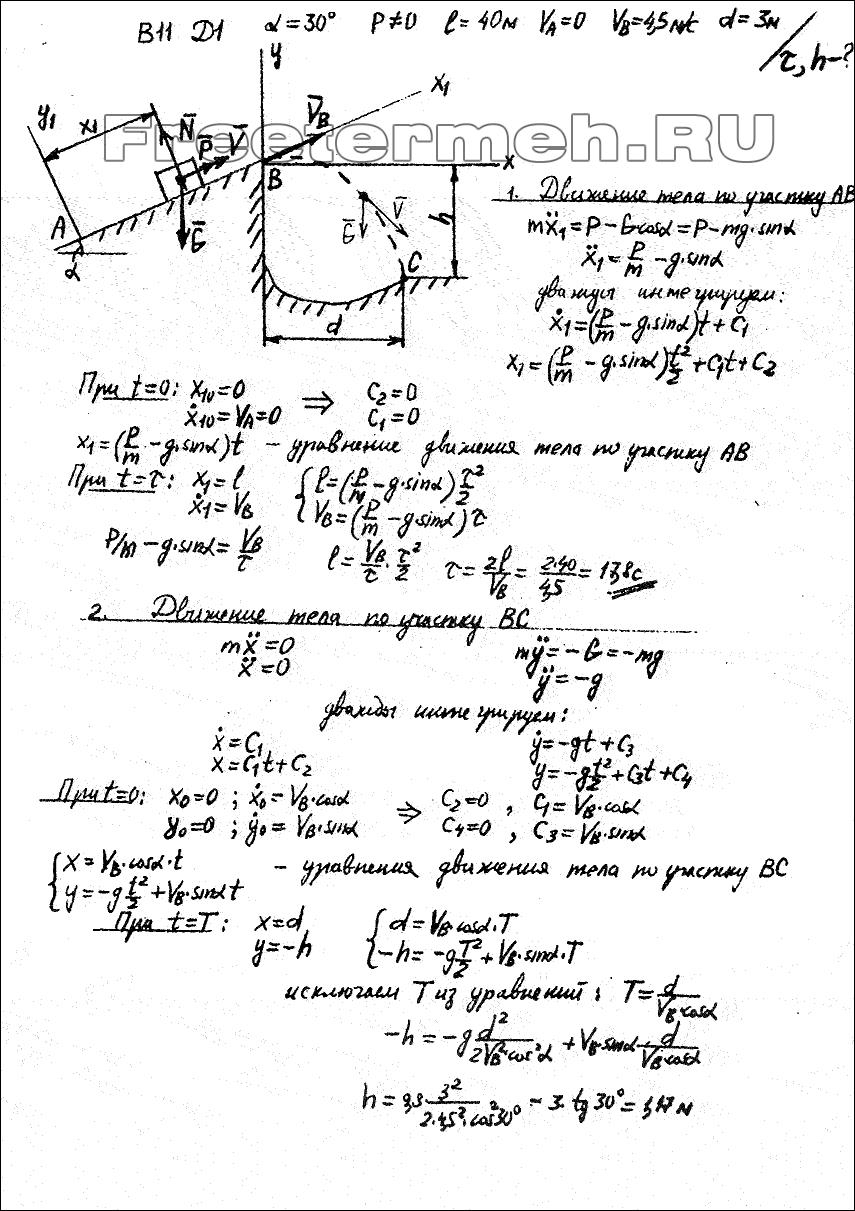 В11 Д1 α=30° P≠0 l=40м V_A=0 V_B=4,5 м/с d=3м
τ, h-?
Freetermeh.RU
y
x₁
y₁
x₁
N̄
P̄
V̄
V̄_B
x
B
A
α
Ḡ
Ḡ
V̄
h
C
d
1. Движение тела по участку АВ
mẍ₁=P-G·cosα=P-mg·sinα
ẍ₁=P/m-g·sinα
дважды интегрируем:
ẋ₁=(P/m-g·sinα)t+C₁
x₁=(P/m-g·sinα)t²/2+C₁t+C₂
При t=0: x₁₀=0 ⇒ C₂=0
ẋ₁₀=V_A=0 C₁=0
x₁=(P/m-g·sinα)t - уравнение движения тела по участку АВ
При t=τ: x₁=l { l=(P/m-g·sinα)τ²/2
ẋ₁=V_B V_B=(P/m-g·sinα)τ
P/m-g·sinα=V_B/τ l=V_B/τ·τ²/2 τ=2l/V_B=2·40/4,5=17,8с
2. Движение тела по участку ВС
mẍ=0 mÿ=-G=-mg
ẍ=0 ÿ=-g
дважды интегрируем:
ẋ=C₁ ẏ=-gt+C₃
x=C₁t+C₂ y=-gt²/2+C₃t+C₄
При t=0: x₀=0 ; ẋ₀=V_B·cosα ⇒ C₂=0 , C₁=V_B·cosα
y₀=0 ; ẏ₀=V_B·sinα C₄=0 , C₃=V_B·sinα
{ x=V_B·cosα·t - уравнения движения тела по участку ВС
y=-gt²/2+V_B·sinαt
При t=T: x=d { d=V_B·cosα·T
y=-h -h=-gT²/2+V_B·sinα·T
исключаем T из уравнений: T=d/V_B·cosα
-h=-g d²/2V_B²·cos²α+V_B·sinα·d/V_B·cosα
h=9,8 3²/2·4,5²·cos²30°-3·tg30°=1,17м